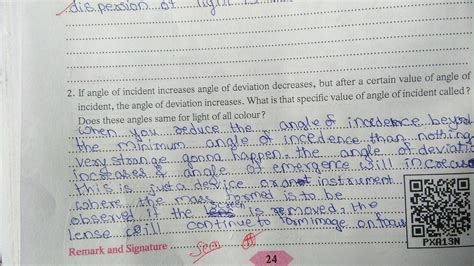 dispersion of light is
2. If angle of incident increases angle of deviation decreases, but after a certain value of angle of
incident, the angle of deviation increases. What is that specific value of angle of incident called ?
Does these angles same for light of all colour ?
When you reduce the angle of incedence beyond
the minimum angle of incedence than nothing
very strange gonna happen. the angle of deviatio
increases & angle of emergence will increase
this is just a device or instrument
where the mass is to be
observed if the is removed, the
lense will continue to form image on focus
Remark and Signature
24
PXA13N